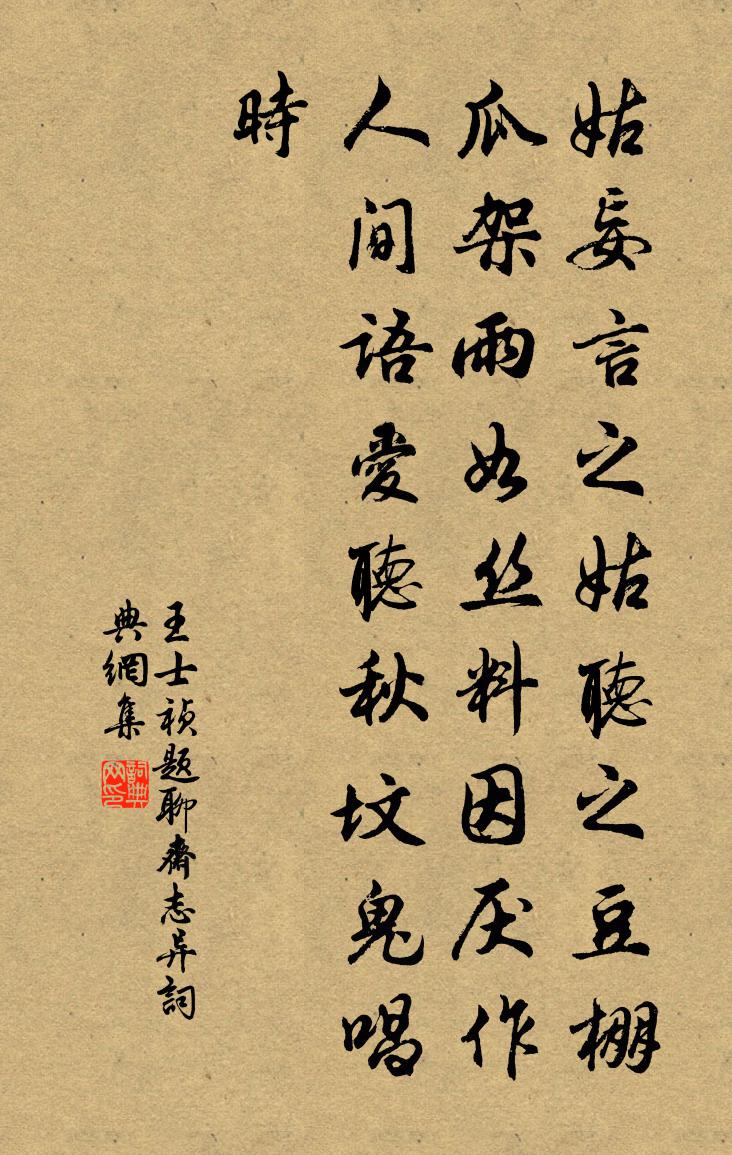 姑妄言之姑聽之豆棚
瓜架雨如丝料因厌作
人间語愛聽秋坟鬼唱
時
王士祯题聊齋志异詞
典網集
詞典
网印